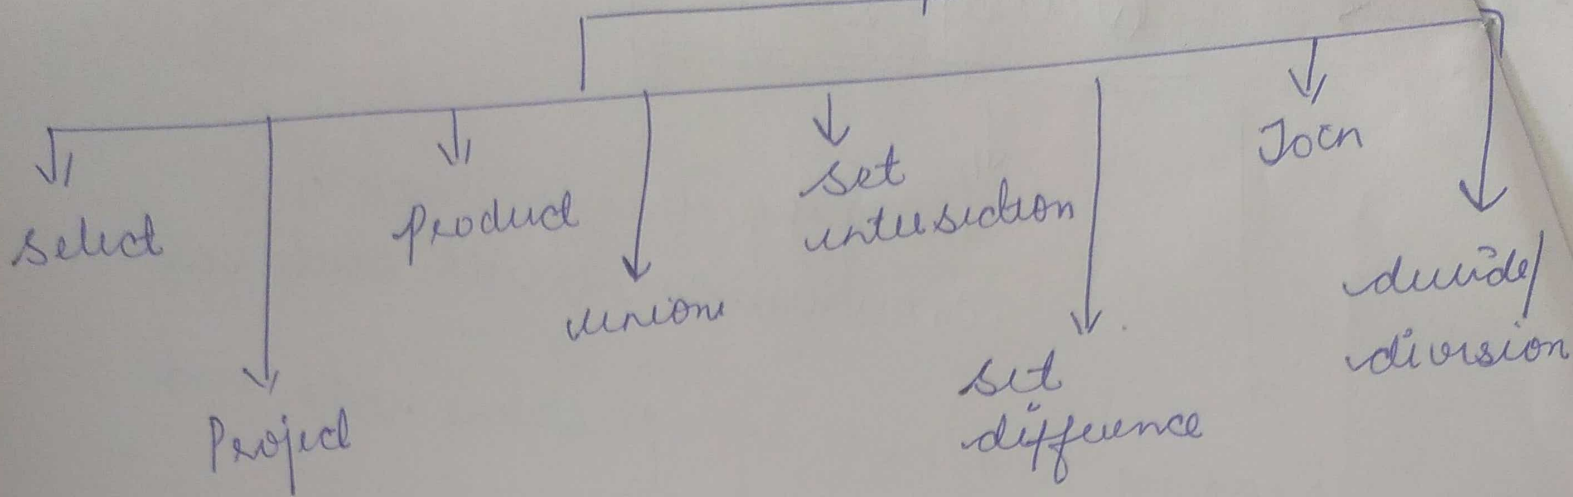 select
Project
Product
union
set
intersection
set
difference
Join
divide/
division